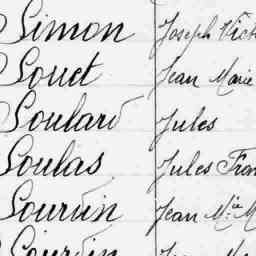 Simon Joseph Vict
Souet Jean Marie
Soulard Jules
Soulas Jules Fran
Sourvin Jean M.ie M